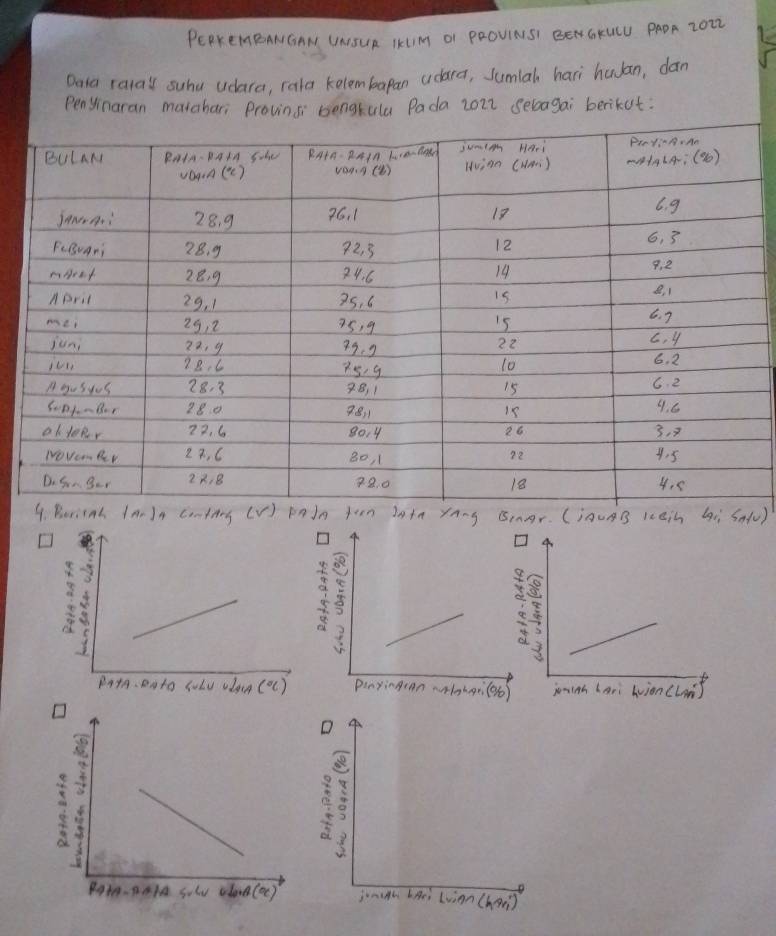 PERKEMBANGAN UNSUR IKLIM DI PROVINSI BENGKULU PADA 2022
Data rata² suhu udara, rata kelembapan udara, Jumlah hari hujan, dan
Penyinaran matahari Provinsi bengkulu Pada 2022 sebagai berikut:
BULAN RATA-RATA SUHU UDARA (°C) RATA-RATA UDARA (%) jumlah HARi HUjAn (HARi) matahari (%)
JANUARi 28,9 76,1 17 6.9
FEBUARi 28,9 72,3 12 6,3
mAret 28,9 74,6 14 7,2
APril 29,1 75,6 15 8,1
mei 29,2 75,9 15 6.7
juni 27,9 79,9 22 6,4
juli 28,6 75,9 10 6.2
AgusTus 28.3 78,1 15 6.2
SepTemBer 28.0 78,1 15 4.6
okTOBer 27,6 80,4 26 3,7
NOVemBer 27,6 80,1 22 4,5
DeSemBer 27,8 78.0 18 4,5
4. BeriLAh TAnDA CenTAng (V) PADA DATA YAng BenAr. (jAWAB leBih DARi SATU)
RATA-RATA UDARA
RATA-RATA SUHU UDARA (°C)
RATA-RATA SUHU UDARA (%)
PenyinARAn mATAhARi (%)
RATA-RATA SUHU UDARA (%)
jumLAh hARi hujan (hARi)
RATA-RATA kelemBaBan UDARA (%)
RATA-RATA SUHU UDARA (°C)
RATA-RATA SUHU UDARA (%)
jumLAh hARi hujAn (hARi)